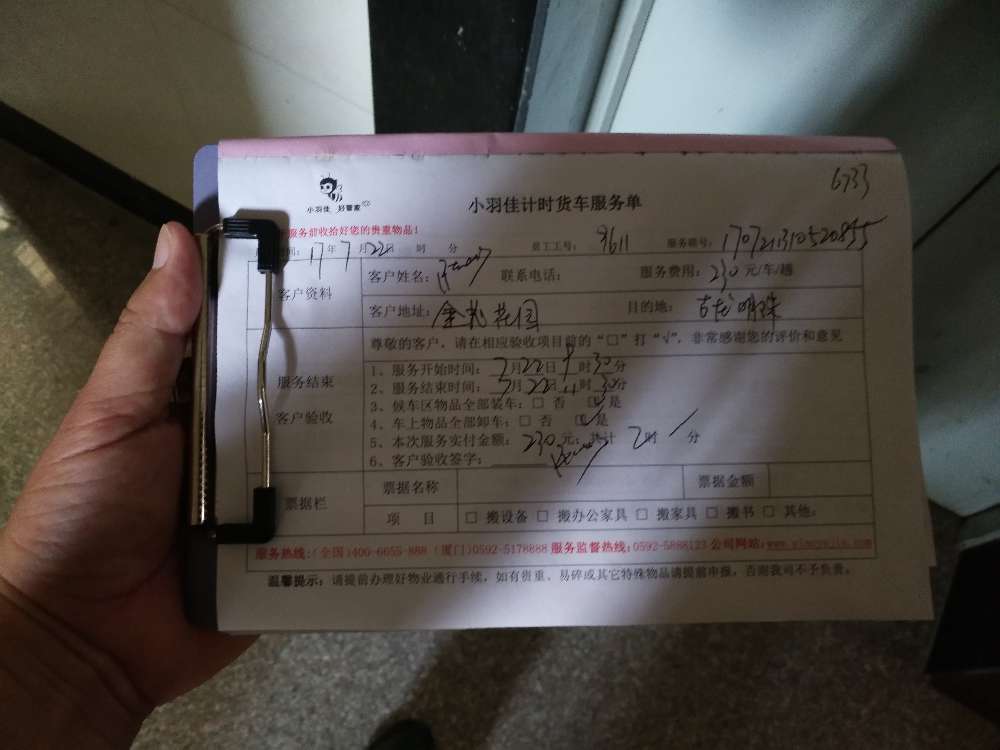 6733
小羽佳 好管家
小羽佳计时货车服务单
服务前收拾好您的贵重物品！
时间：17年7月22日 时 分 员工工号：9611 服务编号：
客户资料
客户姓名： 联系电话： 服务费用：230元/车/趟
客户地址： 花园 目的地：古龙明珠
尊敬的客户，请在相应验收项目前的“□”打“√”，非常感谢您的评价和意见
服务结束
客户验收
1、服务开始时间：7月22日9时30分
2、服务结束时间：7月22日11时30分
3、候车区物品全部装车：□ 否 ☑ 是
4、车上物品全部卸车：□ 否 ☑ 是
5、本次服务实付金额：230元；共计 2时 / 分
6、客户验收签字：
票据栏
票据名称 票据金额
项 目 □ 搬设备 □ 搬办公家具 □ 搬家具 □ 搬书 □ 其他：
服务热线：(全国)400-6655-888 (厦门)0592-5178888 服务监督热线：0592-5888123 公司网站：www.xiaoyujia.com
温馨提示：请提前办理好物业通行手续，如有贵重、易碎或其它特殊物品请提前申报，否则我司不予负责。